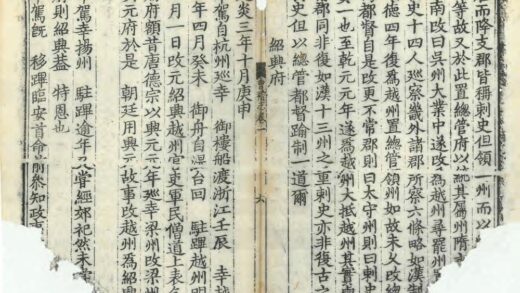 而降支郡皆稱刺史但領一州而以
等故又於此置總管府以統其屬州隋
南改曰吳州大業中遂改為越州尋罷州
史十四人巡察畿外諸郡所察六條略如漢制
德四年復為越州置總管領州如故未乂改總
都督自是改更不常郡則曰太守州則曰刺史
一也至乾元元年遂為越州大抵越州其實南
都同非復如漢十三州之重刺史亦非復古之
史但以總管都督踰制一道爾
紹興府
志卷一 六
炎三年十月庚申
駕自杭州巡幸 御樓船渡浙江壬辰 幸越
年四月癸未 御舟自溫台回 駐蹕越州明
月一日改元紹興越州官吏軍民僧道上表
府額昔唐德宗以興元元年巡幸梁州改梁
元府於是 朝廷用興元故事改越州為紹興
駕幸揚州 駐蹕逾年又嘗經郊祀然未嘗
則紹興蓋 特恩也
駕既 移蹕臨安首命前參知政